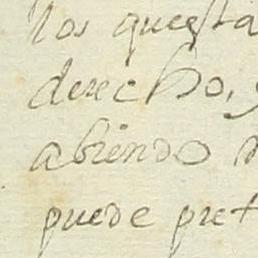 los questa
derecho, y
abiendo
puede pret